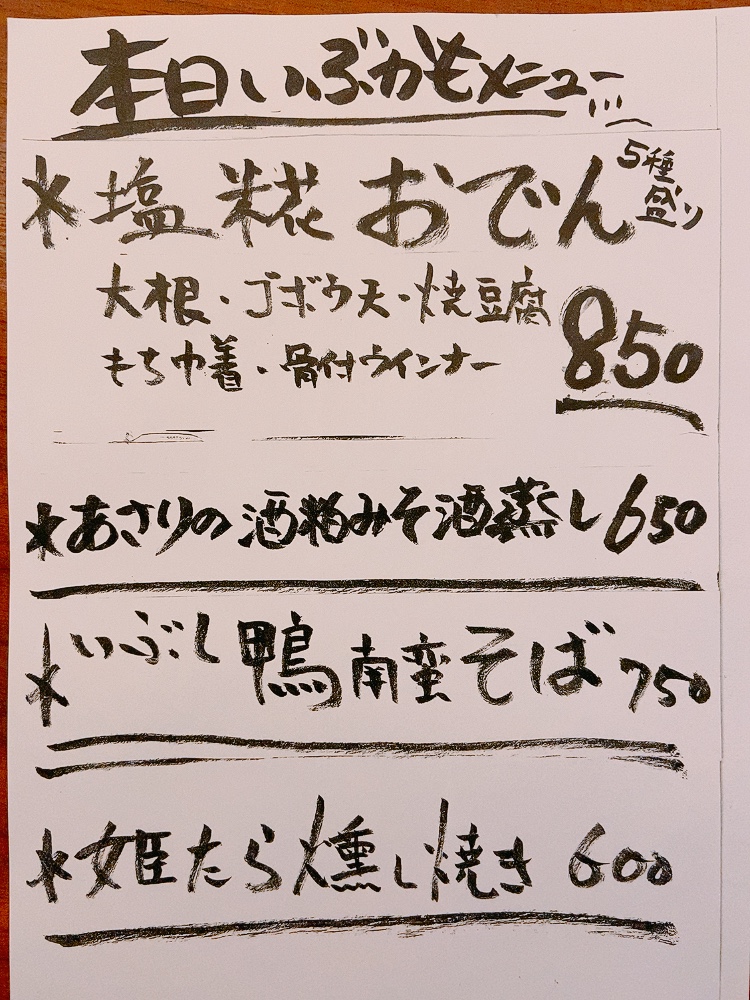 本日いぶかもメニュー
*塩糀おでん 5種盛り
大根・ゴボウ天・焼豆腐
もち巾着・骨付ウインナー 850
*あさりの酒粕みそ酒蒸し 650
*いぶし鴨南蛮そば 750
*姫たら燻し焼き 600